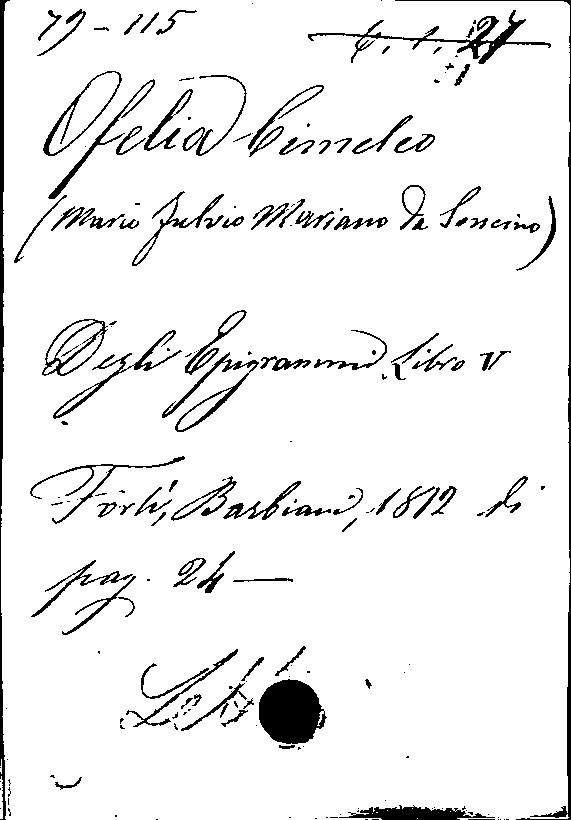 79-115 6.1.27
Ofelia Cimeleo
(Mario Fulvio Mariano da Soncino)
Degli Epigrammi Libro V
Forlì, Barbiani, 1812 di
pag. 24 —